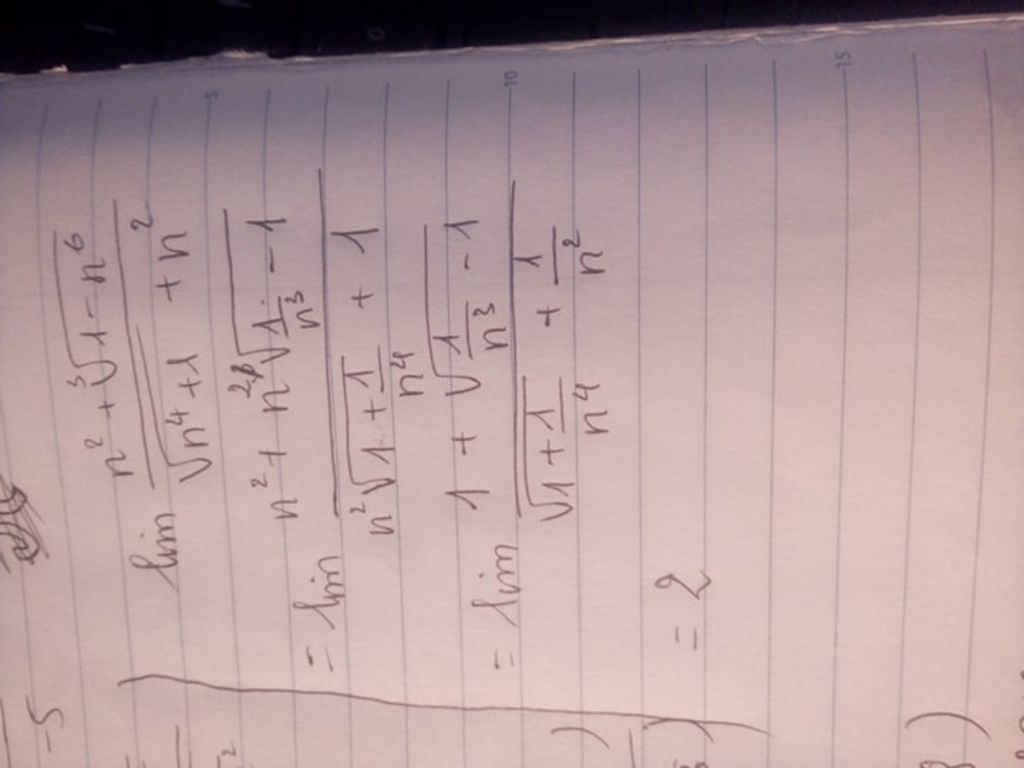 lim (n² + ³√(1 - n⁶)) / (√(n⁴ + 1) + n²)
= lim (n² + n² √(1/n³ - 1)) / (n² √(1 + 1/n⁴) + 1)
= lim (1 + √(1/n³ - 1)) / (√(1 + 1/n⁴) + 1/n²)
= 2
-5
5
10
15